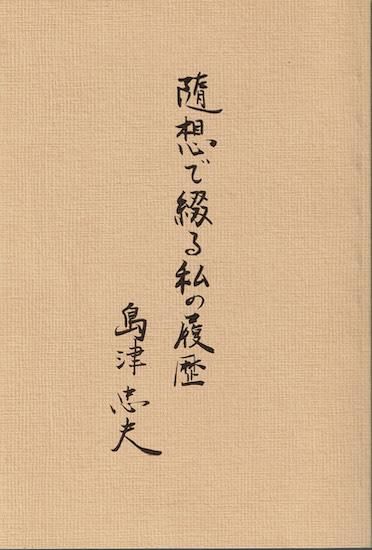 随想で綴る私の履歴
島津忠夫